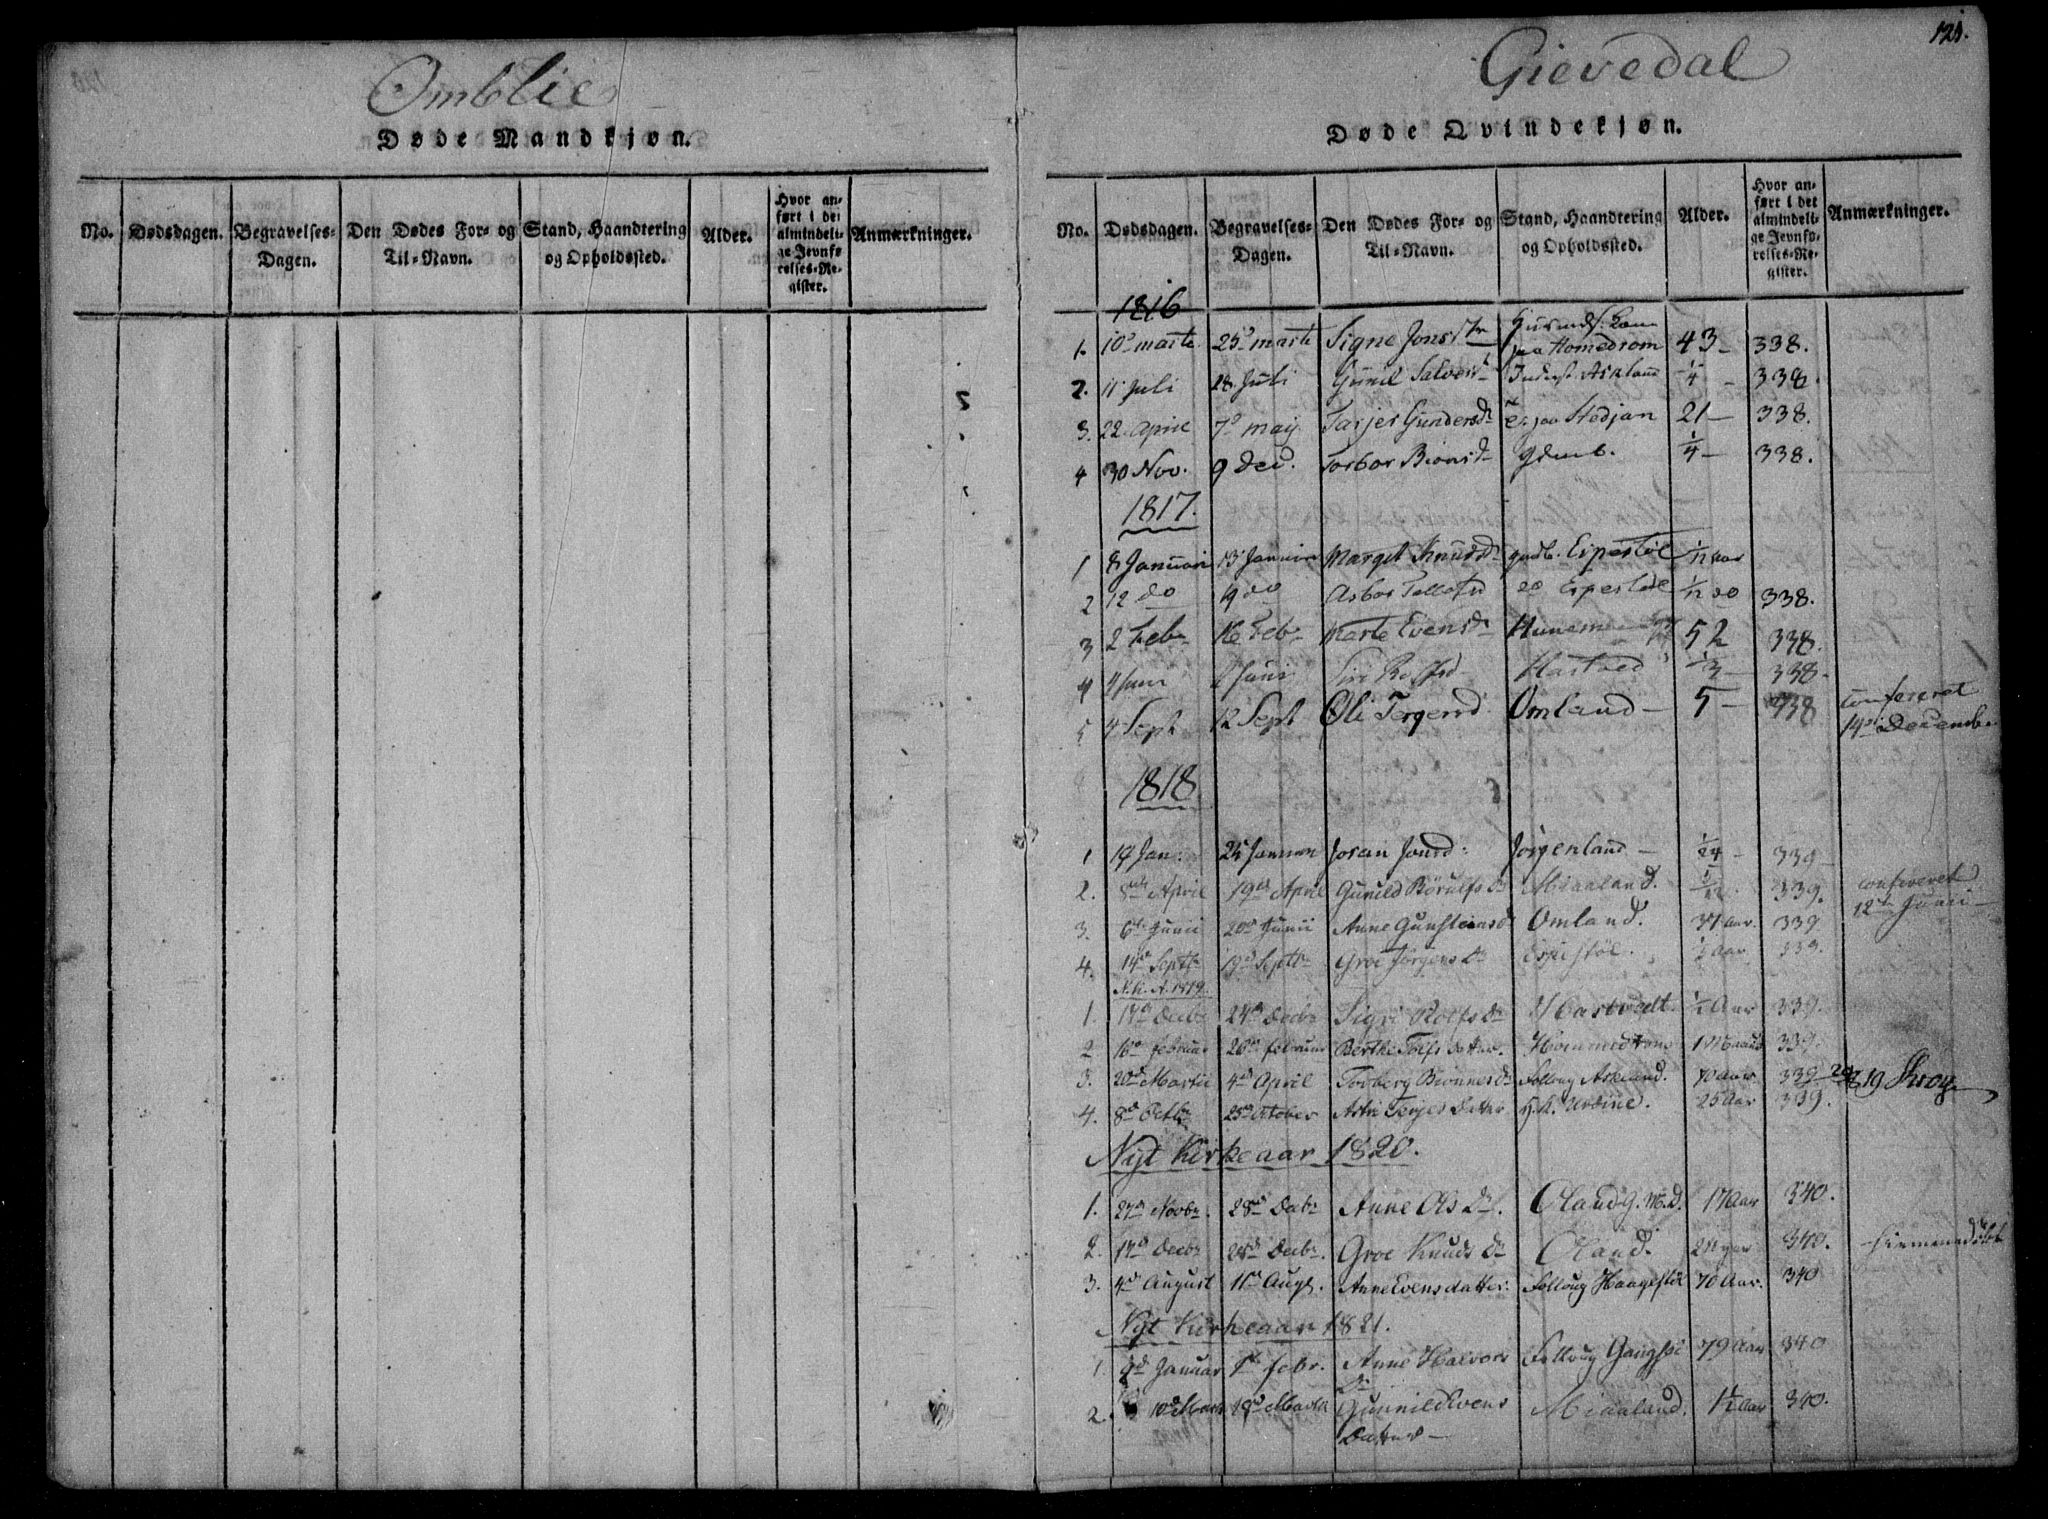 Omblie
Døde Mandkjøn.
No. Dødsdagen. Begravelses-Dagen. Den Dødes For- og Til-Navn. Stand, Haandtering og Opholdssted. Alder. Hvor anført i det almindelige Jevnførelses-Register. Anmærkninger.
121.
Gievedal
Døde Qvindekjøn.
No. Dødsdagen. Begravelses-Dagen. Den Dødes For- og Til-Navn. Stand, Haandtering og Opholdssted. Alder. Hvor anført i det almindelige Jevnførelses-Register. Anmærkninger.
1816
1. 10 marti 25 marti Signe Jons Homedrom 43 338.
2. 11 Juli 28 Juli Gunil Salves Askland 1/4 338.
3. 22 April 7 maij Tarjer Gundersd Stedjan 21 338.
4 30 Nov. 9 Dec. Torbor Bionsd 1/4 338.
1817.
1 8 Januari 13 Januar Marget Knudsd Espestøl 1/12 aar
2 12 do 19 do Asbor Tellefsd do Espestøl 1/12 do 338.
3 2 Feb 16 Feb Marte Evensd 52 338.
4 4 Juni Juni Siri Rolfsd Hastved 1/3 338.
5 4 Sept 12 Sept Oli Tergersd Omland 5 338 confereret
14 Decemb
1818
1 19 Jan. 25 Januari Joran Jonsd: Jørgenland 1/24 339
2. 5 April 19 April Gunild Børulfs Dr Miaaland. 339. confereret
12 Junii
3. 6 Junii 20 Junii Anne Gunsteinsd Omland. 37 aar. 339
4. 14 Septbr 19 Septbr Groe Jørgens Dr Espestøl. 1/2 Aar 339.
N. K. A. 1819.
1. 17 Decbr 24 Decbr Sigri Rolfs Dr Hastvedt. 1/2 Aar 339.
2 16 februar 26 februar Berthe Toefs datter. Hommedrom 1 Maaned 339.
3. 20 Martii 4 April Torberg Biønnes Dr Follaug Askland. 70 aar 339
4. 8 Octbr 25 October Astri Terjes Datter H.K. Urdine. 25 Aar 339.
Nyt Kirkeaar 1820.
1. 27 Novbr. 28 Decbr Anne Ols Dr. Oland G. M. D. 17 Aar 340.
2. 17 Decbr 28 Decbr. Groe Knuds Dr Oland. 340.
3. 4 August 11 Aug. Anne Evensdatter. Follaug Haugestøl 70 Aar. 340
Nyt Kirkeaar 1821.
1. 9 Januar 1 febr. Anne Halvors Follaug 79 Aar 340
Dr
2. 10 Marti 18 Marti Gunnild Evens Miaaland. 1 1/2 Aar 340.
Datter